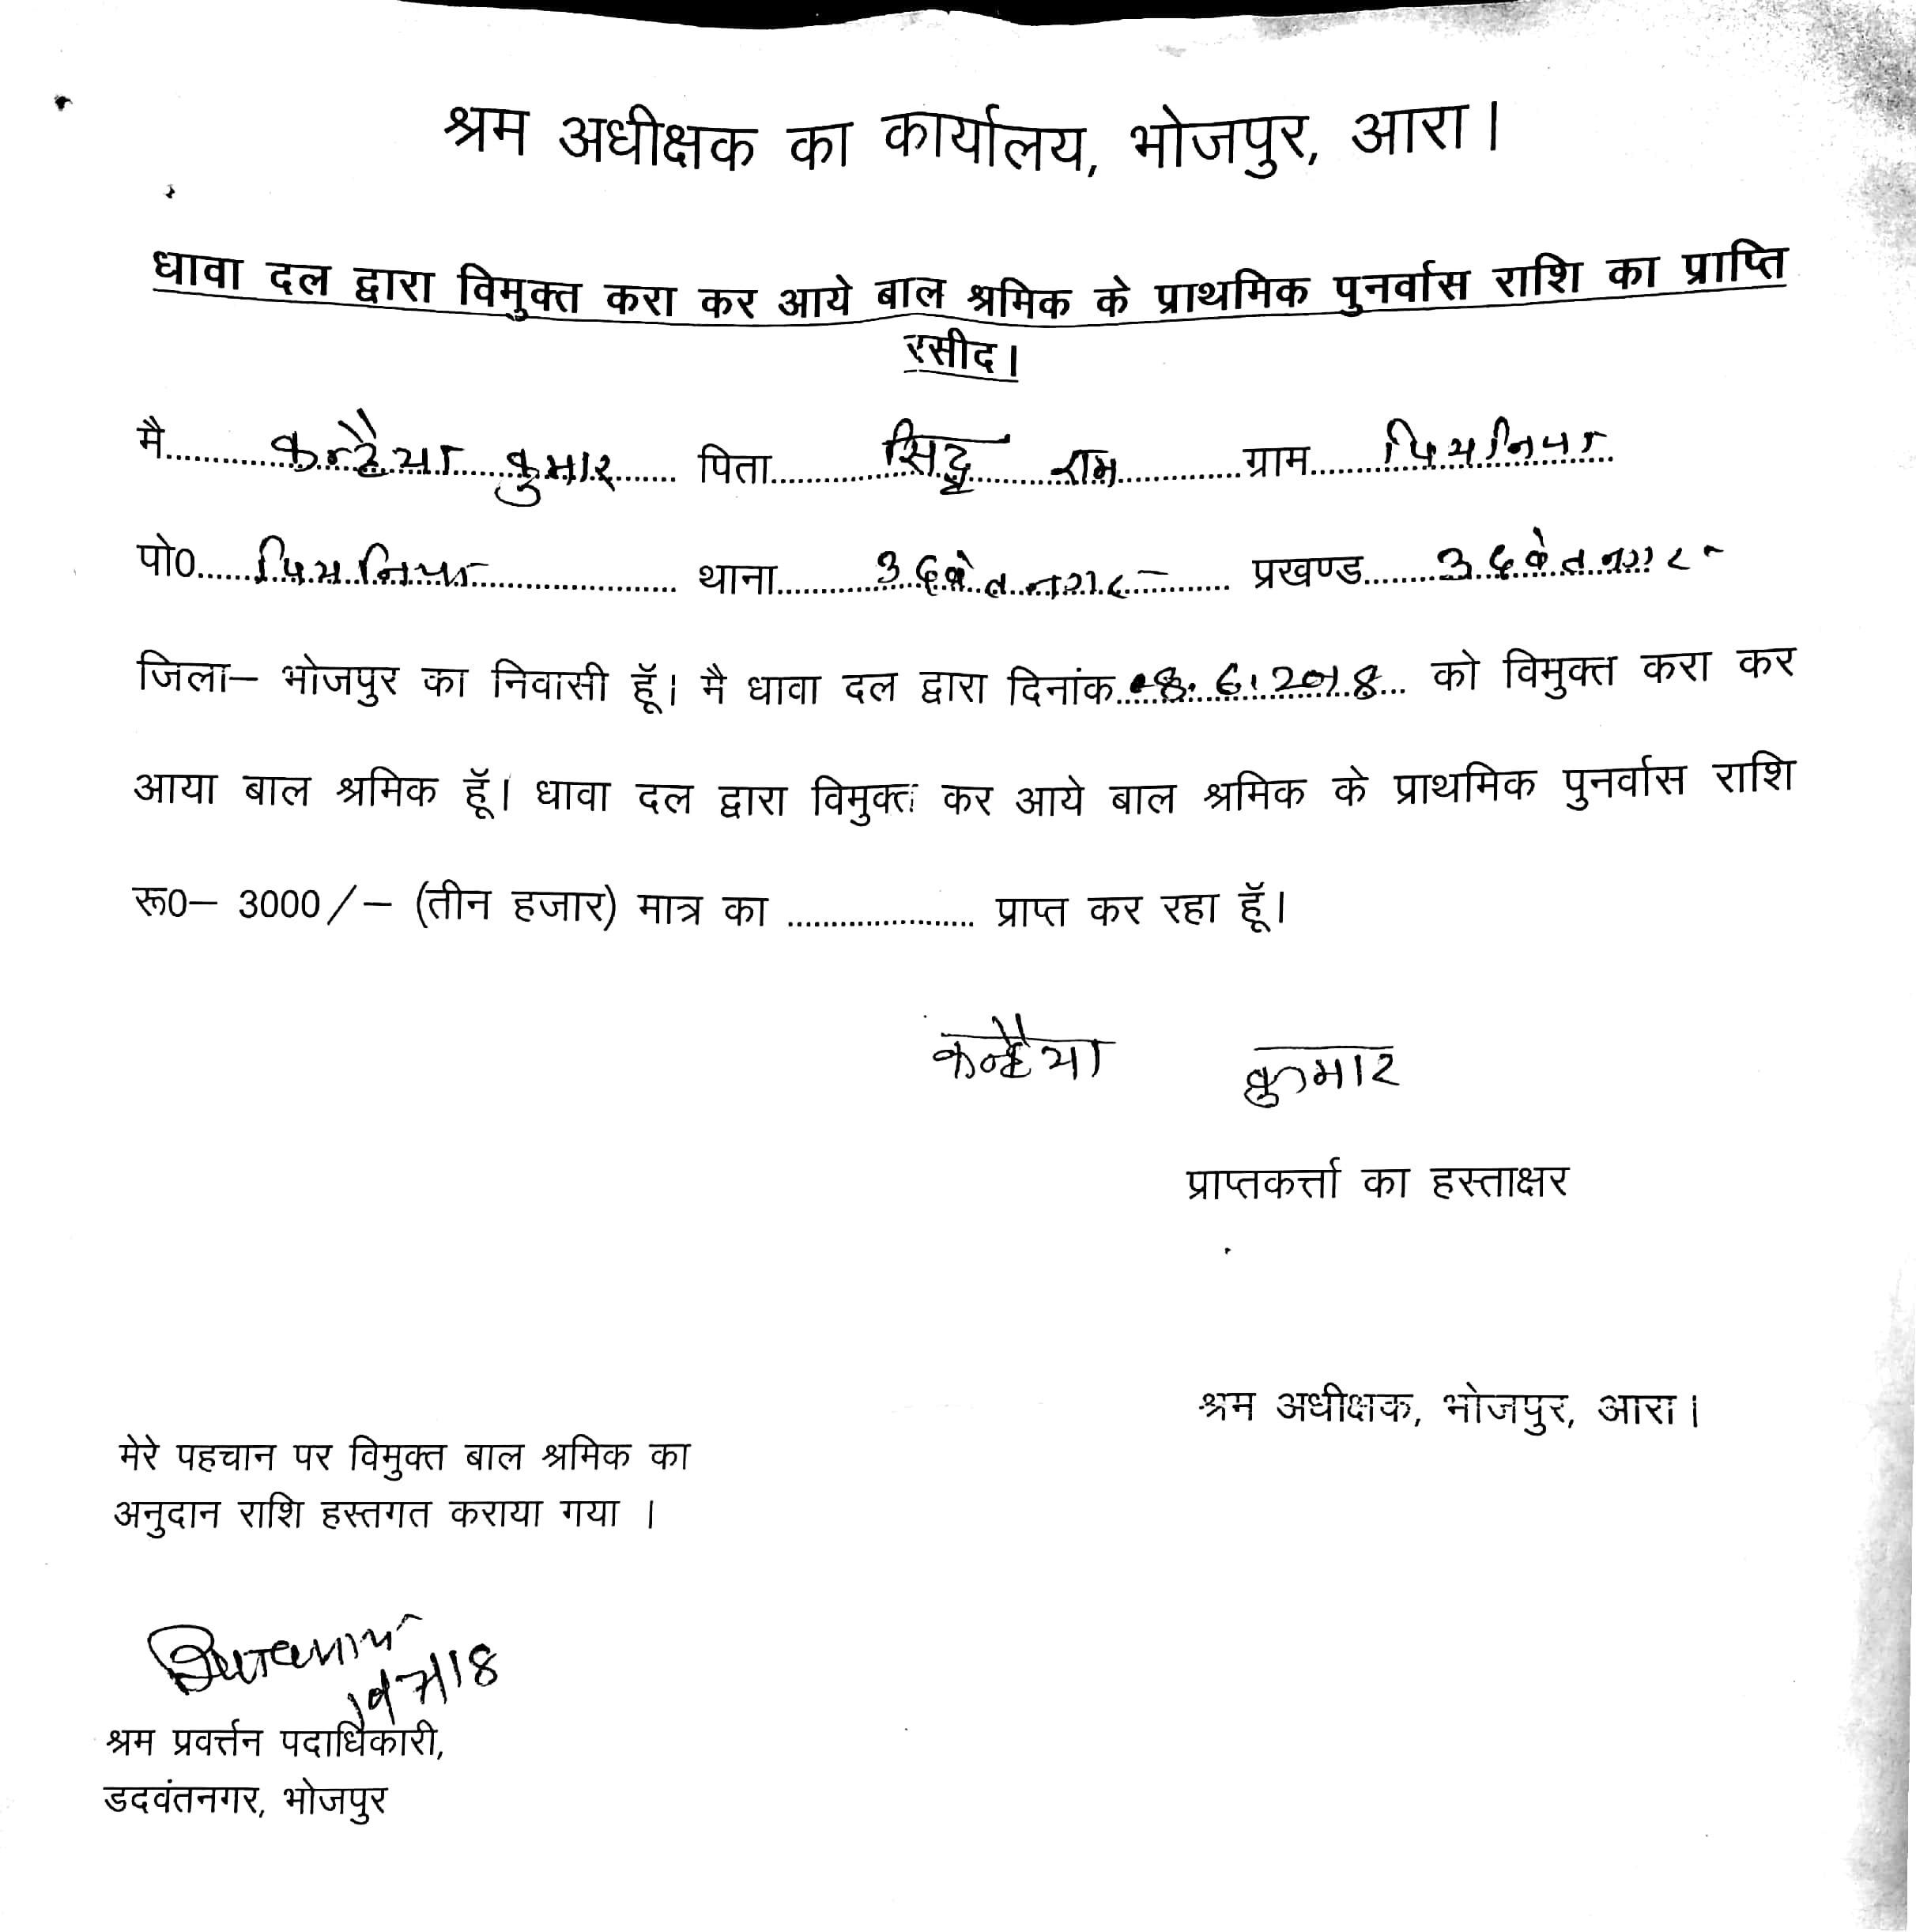 श्रम अधीक्षक का कार्यालय, भोजपुर, आरा।
धावा दल द्वारा विमुक्त करा कर आये बाल श्रमिक के प्राथमिक पुनर्वास राशि का प्राप्ति
रसीद।
मै.......... कन्हैया कुमार .......... पिता.......... सिटू राम ..........ग्राम.......... पियनिया
पो0.......... पियनिया .......... थाना.......... उदवंतनगर .......... प्रखण्ड.......... उदवंतनगर
जिला– भोजपुर का निवासी हूँ। मै धावा दल द्वारा दिनांक..08.6.2018... को विमुक्त करा कर
आया बाल श्रमिक हूँ। धावा दल द्वारा विमुक्त कर आये बाल श्रमिक के प्राथमिक पुनर्वास राशि
रू0– 3000/– (तीन हजार) मात्र का .................... प्राप्त कर रहा हूँ।
कन्हैया कुमार
प्राप्तकर्त्ता का हस्ताक्षर
श्रम अधीक्षक, भोजपुर, आरा।
मेरे पहचान पर विमुक्त बाल श्रमिक का
अनुदान राशि हस्तगत कराया गया ।
19/7/18
श्रम प्रवर्त्तन पदाधिकारी,
डदवंतनगर, भोजपुर